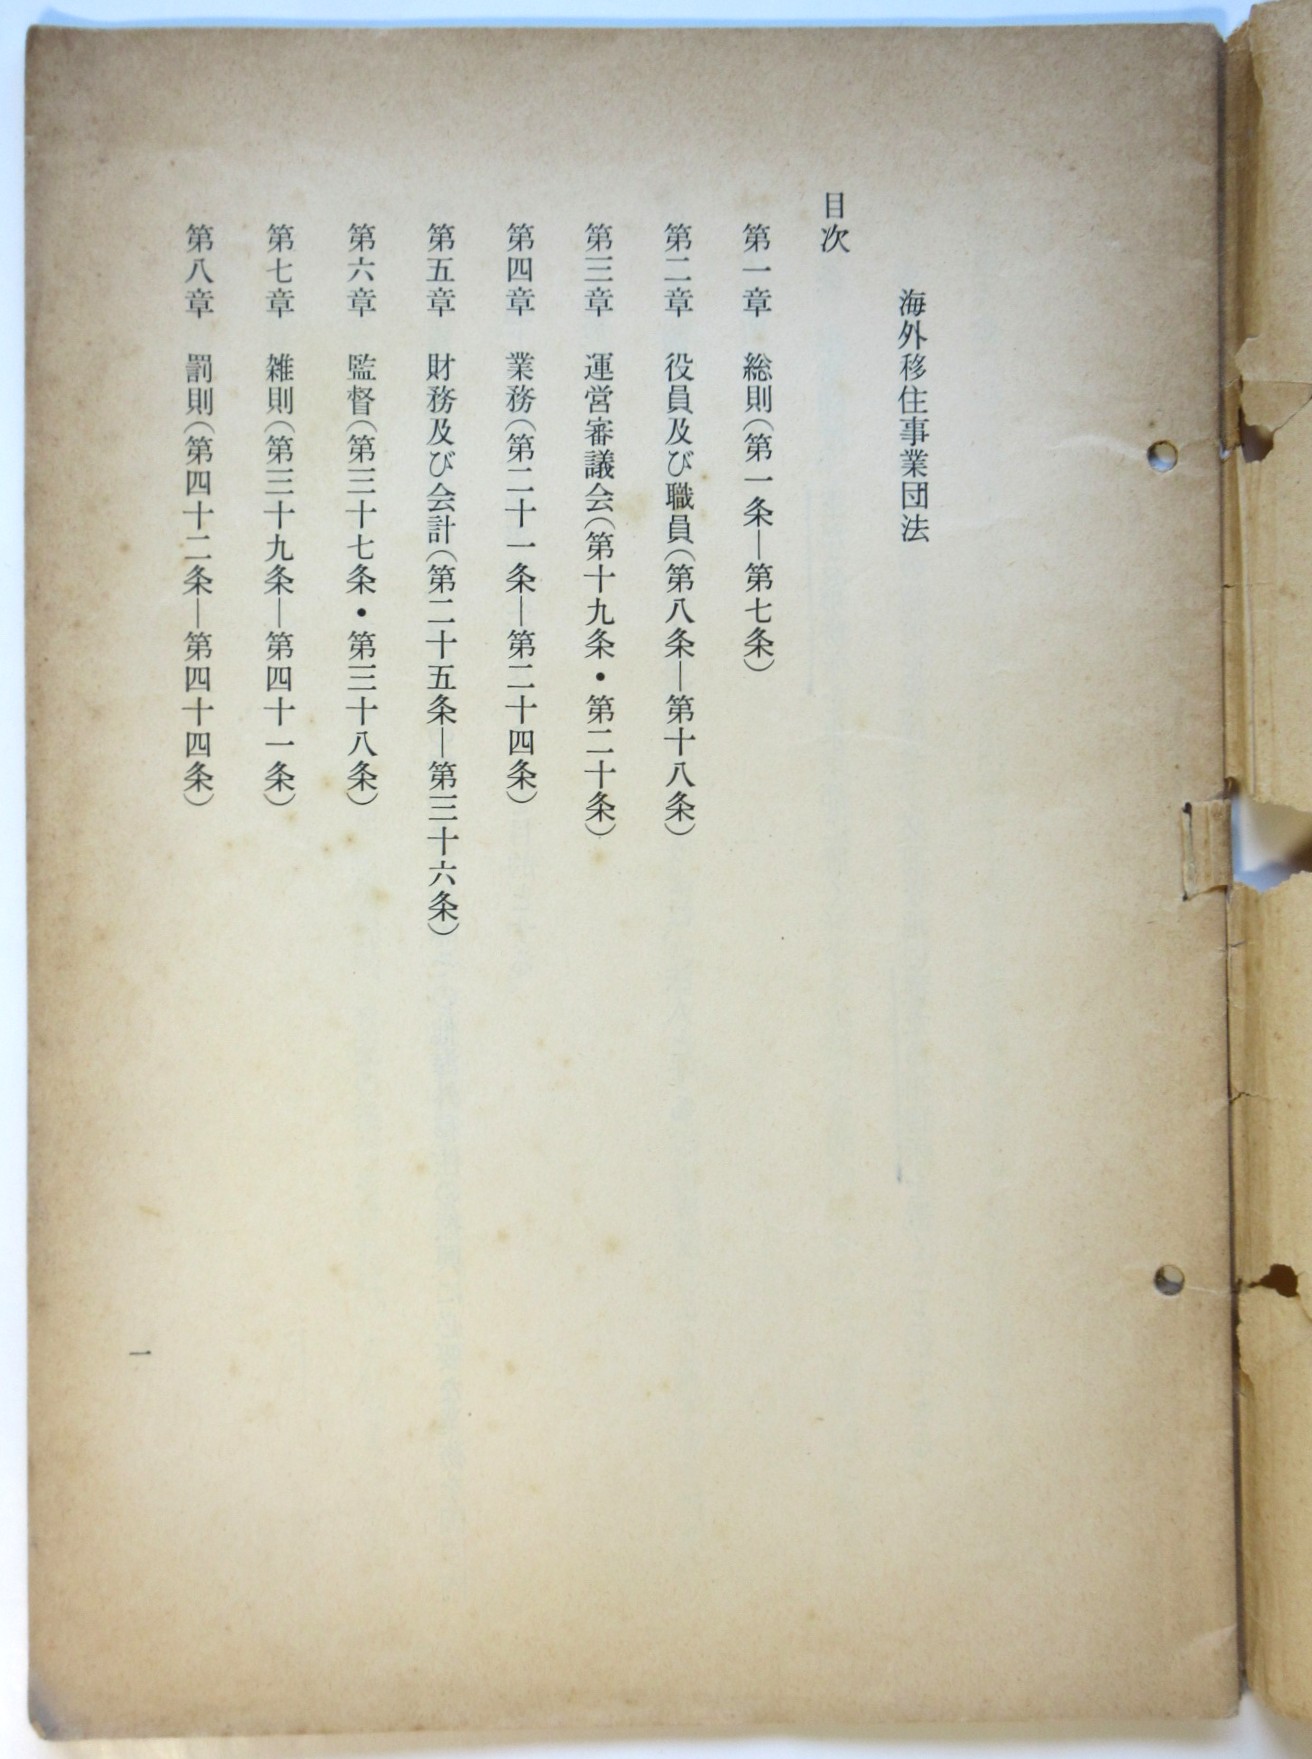 海外移住事業団法
目次
第一章　総則（第一条―第七条）
第二章　役員及び職員（第八条―第十八条）
第三章　運営審議会（第十九条・第二十条）
第四章　業務（第二十一条―第二十四条）
第五章　財務及び会計（第二十五条―第三十六条）
第六章　監督（第三十七条・第三十八条）
第七章　雑則（第三十九条―第四十一条）
第八章　罰則（第四十二条―第四十四条）
一